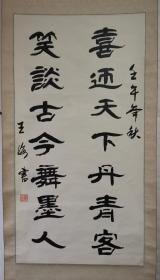 壬午年秋
喜迎天下丹青客
笑談古今舞墨人
王海書